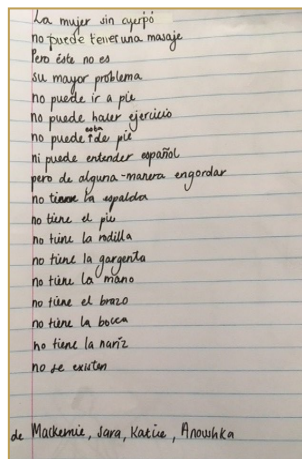 La mujer sin cuerpó
no puede tener una masaje
Pero éste no es
su mayor problema
no puede ir a pie
no puede hacer ejercicio
no puede esta de pie
ni puede entender español
pero de alguna-manera engordar
no tiene la espalda
no tiene el pie
no tiene la rodilla
no tiene la garganta
no tiene la mano
no tiene el brazo
no tiene la bocca
no tiene la nariz
no se existen
de Mackenzie, Sara, Katie, Anoushka